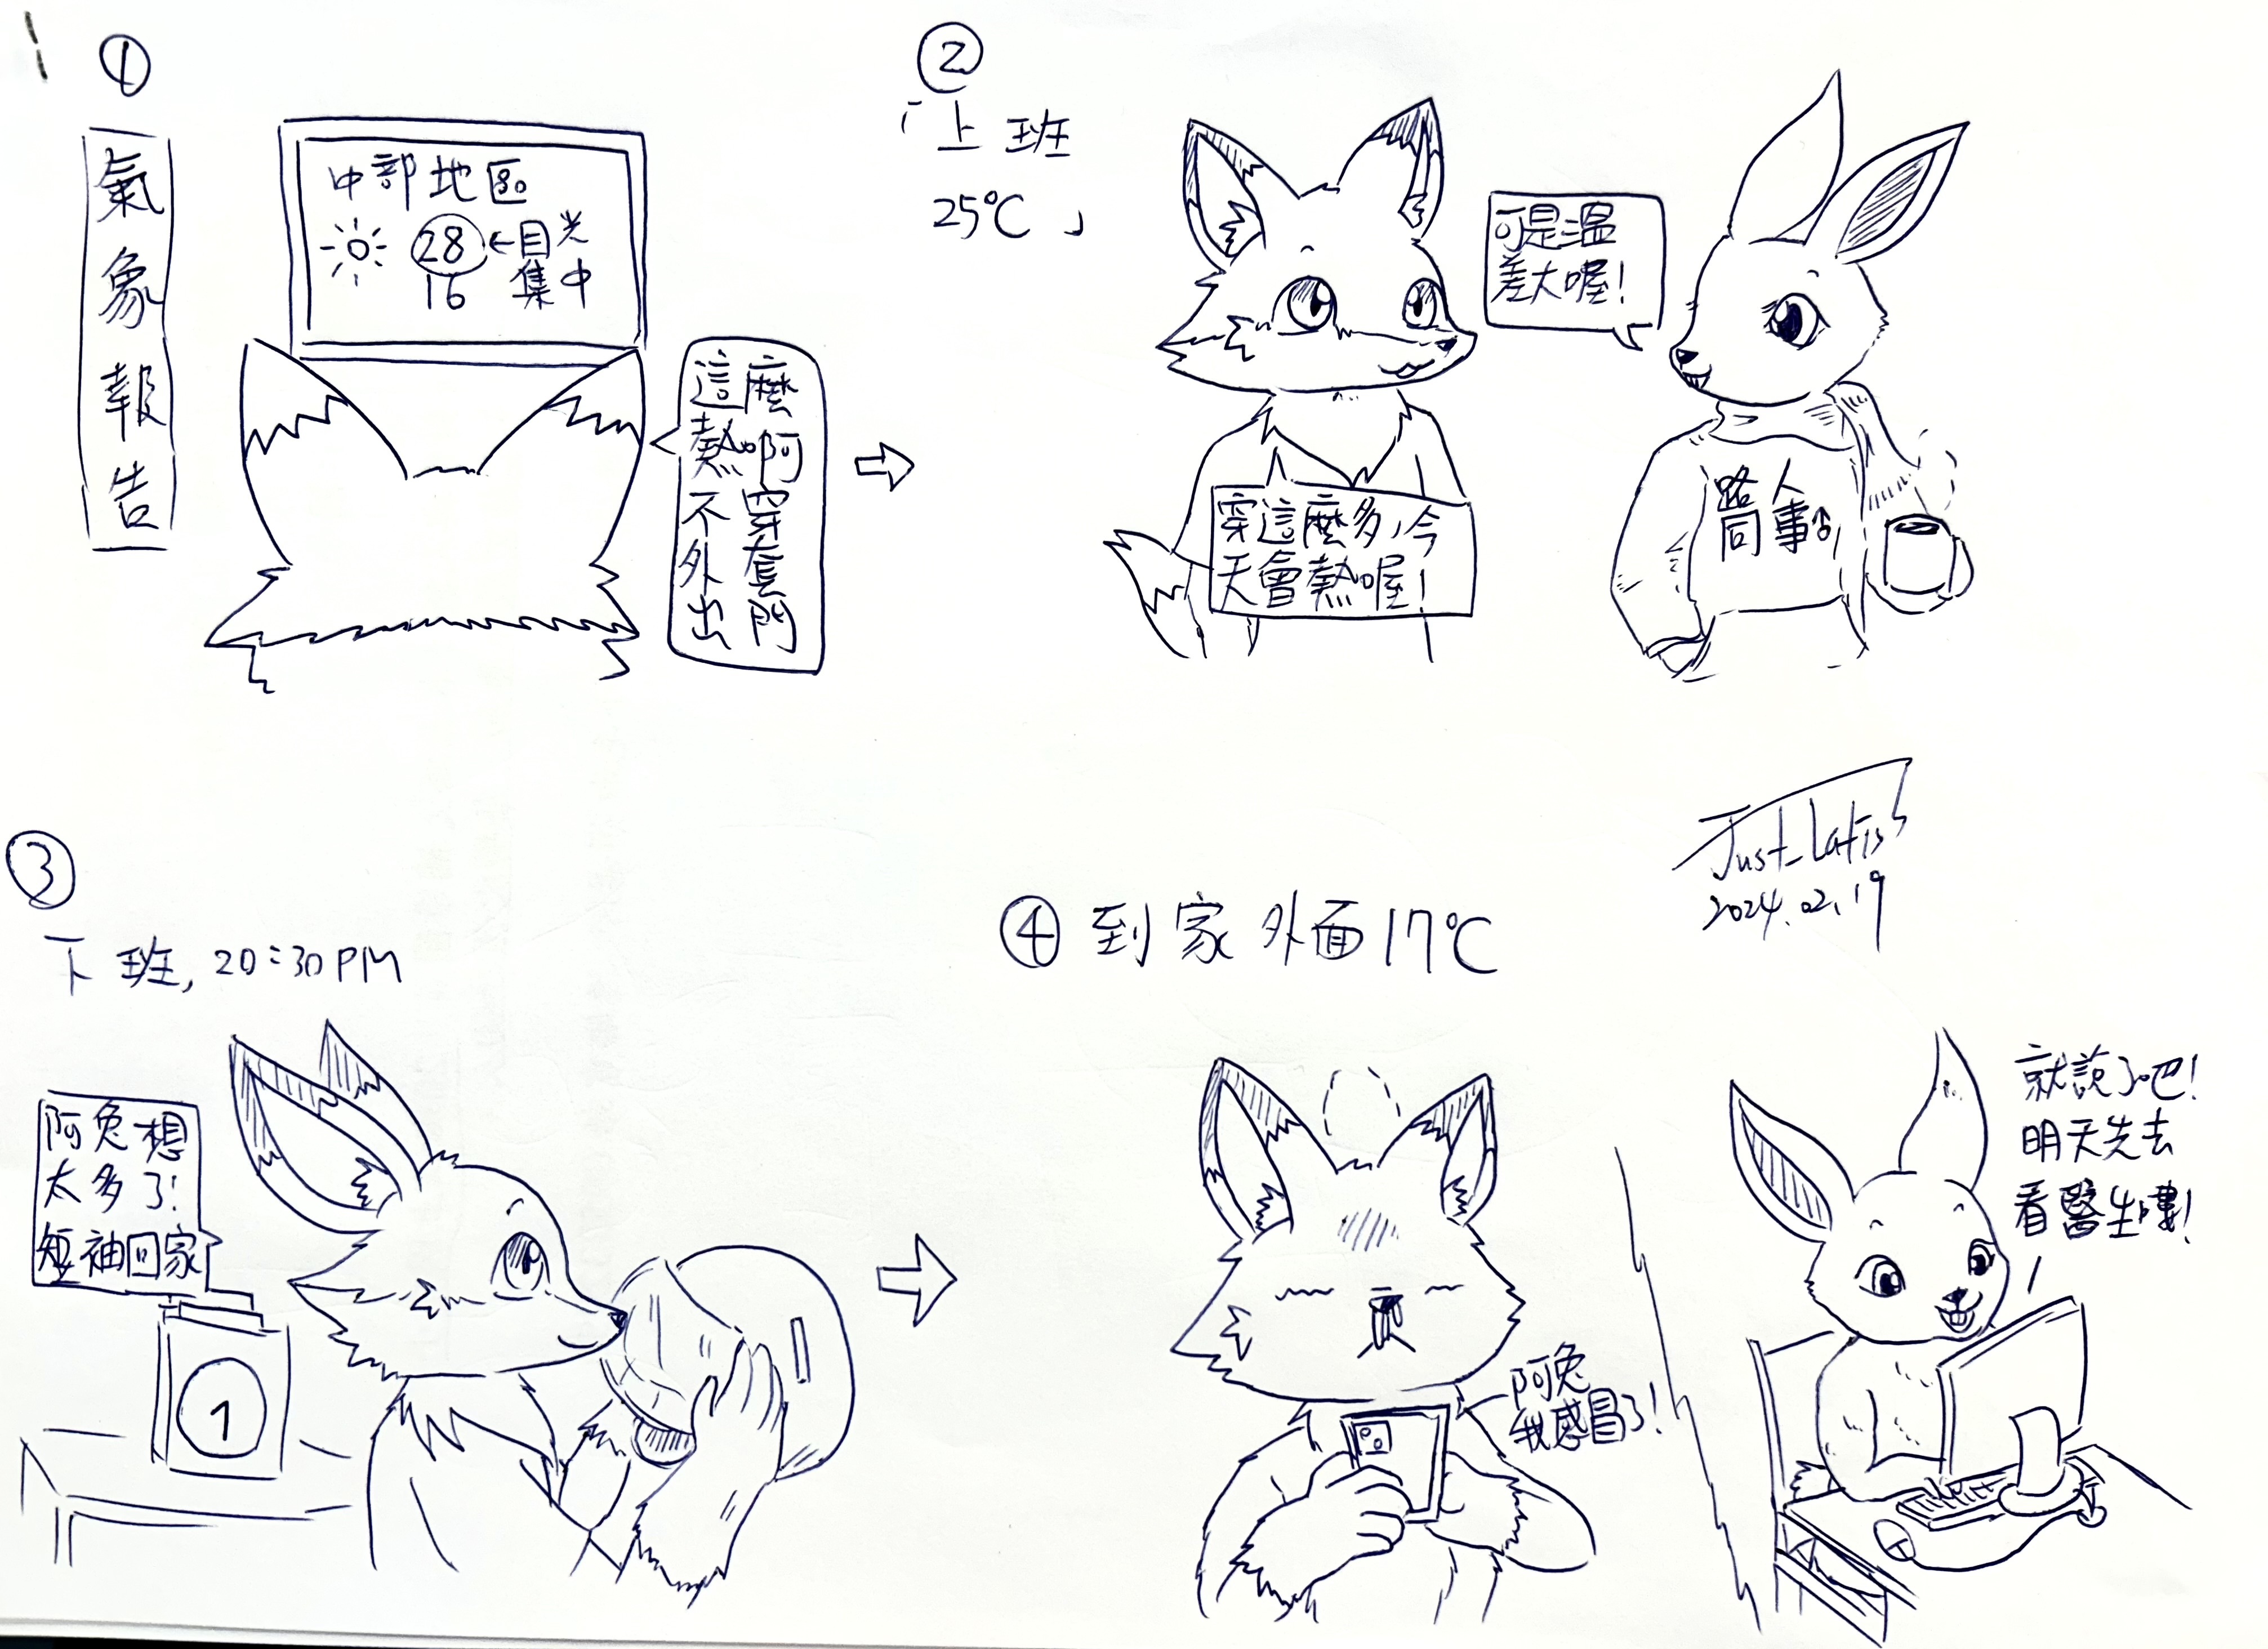 ①
氣象報告
中部地區
28 ←目光
16 集中
這麼
熱啊
不穿
外套
出門
②
「上班
25℃」
可是溫
差大喔!
穿這麼多,今
天會熱喔!
路人
同事
③
下班, 20:30PM
阿兔想
太多了!
短袖回家
1
④到家外面17℃
阿兔
我感冒了!
就說了吧!
明天先去
看醫生嘍!
Just_Latis
2024.02.19